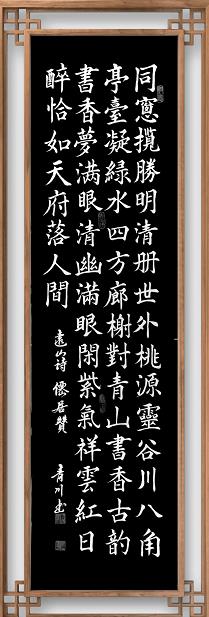 同窗攬勝明清册世外桃源靈谷川八角
亭臺凝綠水四方廊榭對青山書香古韵
書香夢满眼清幽滿眼閑紫氣祥雲紅日
醉恰如天府落人間
遠山詩 儒居贊
青川書